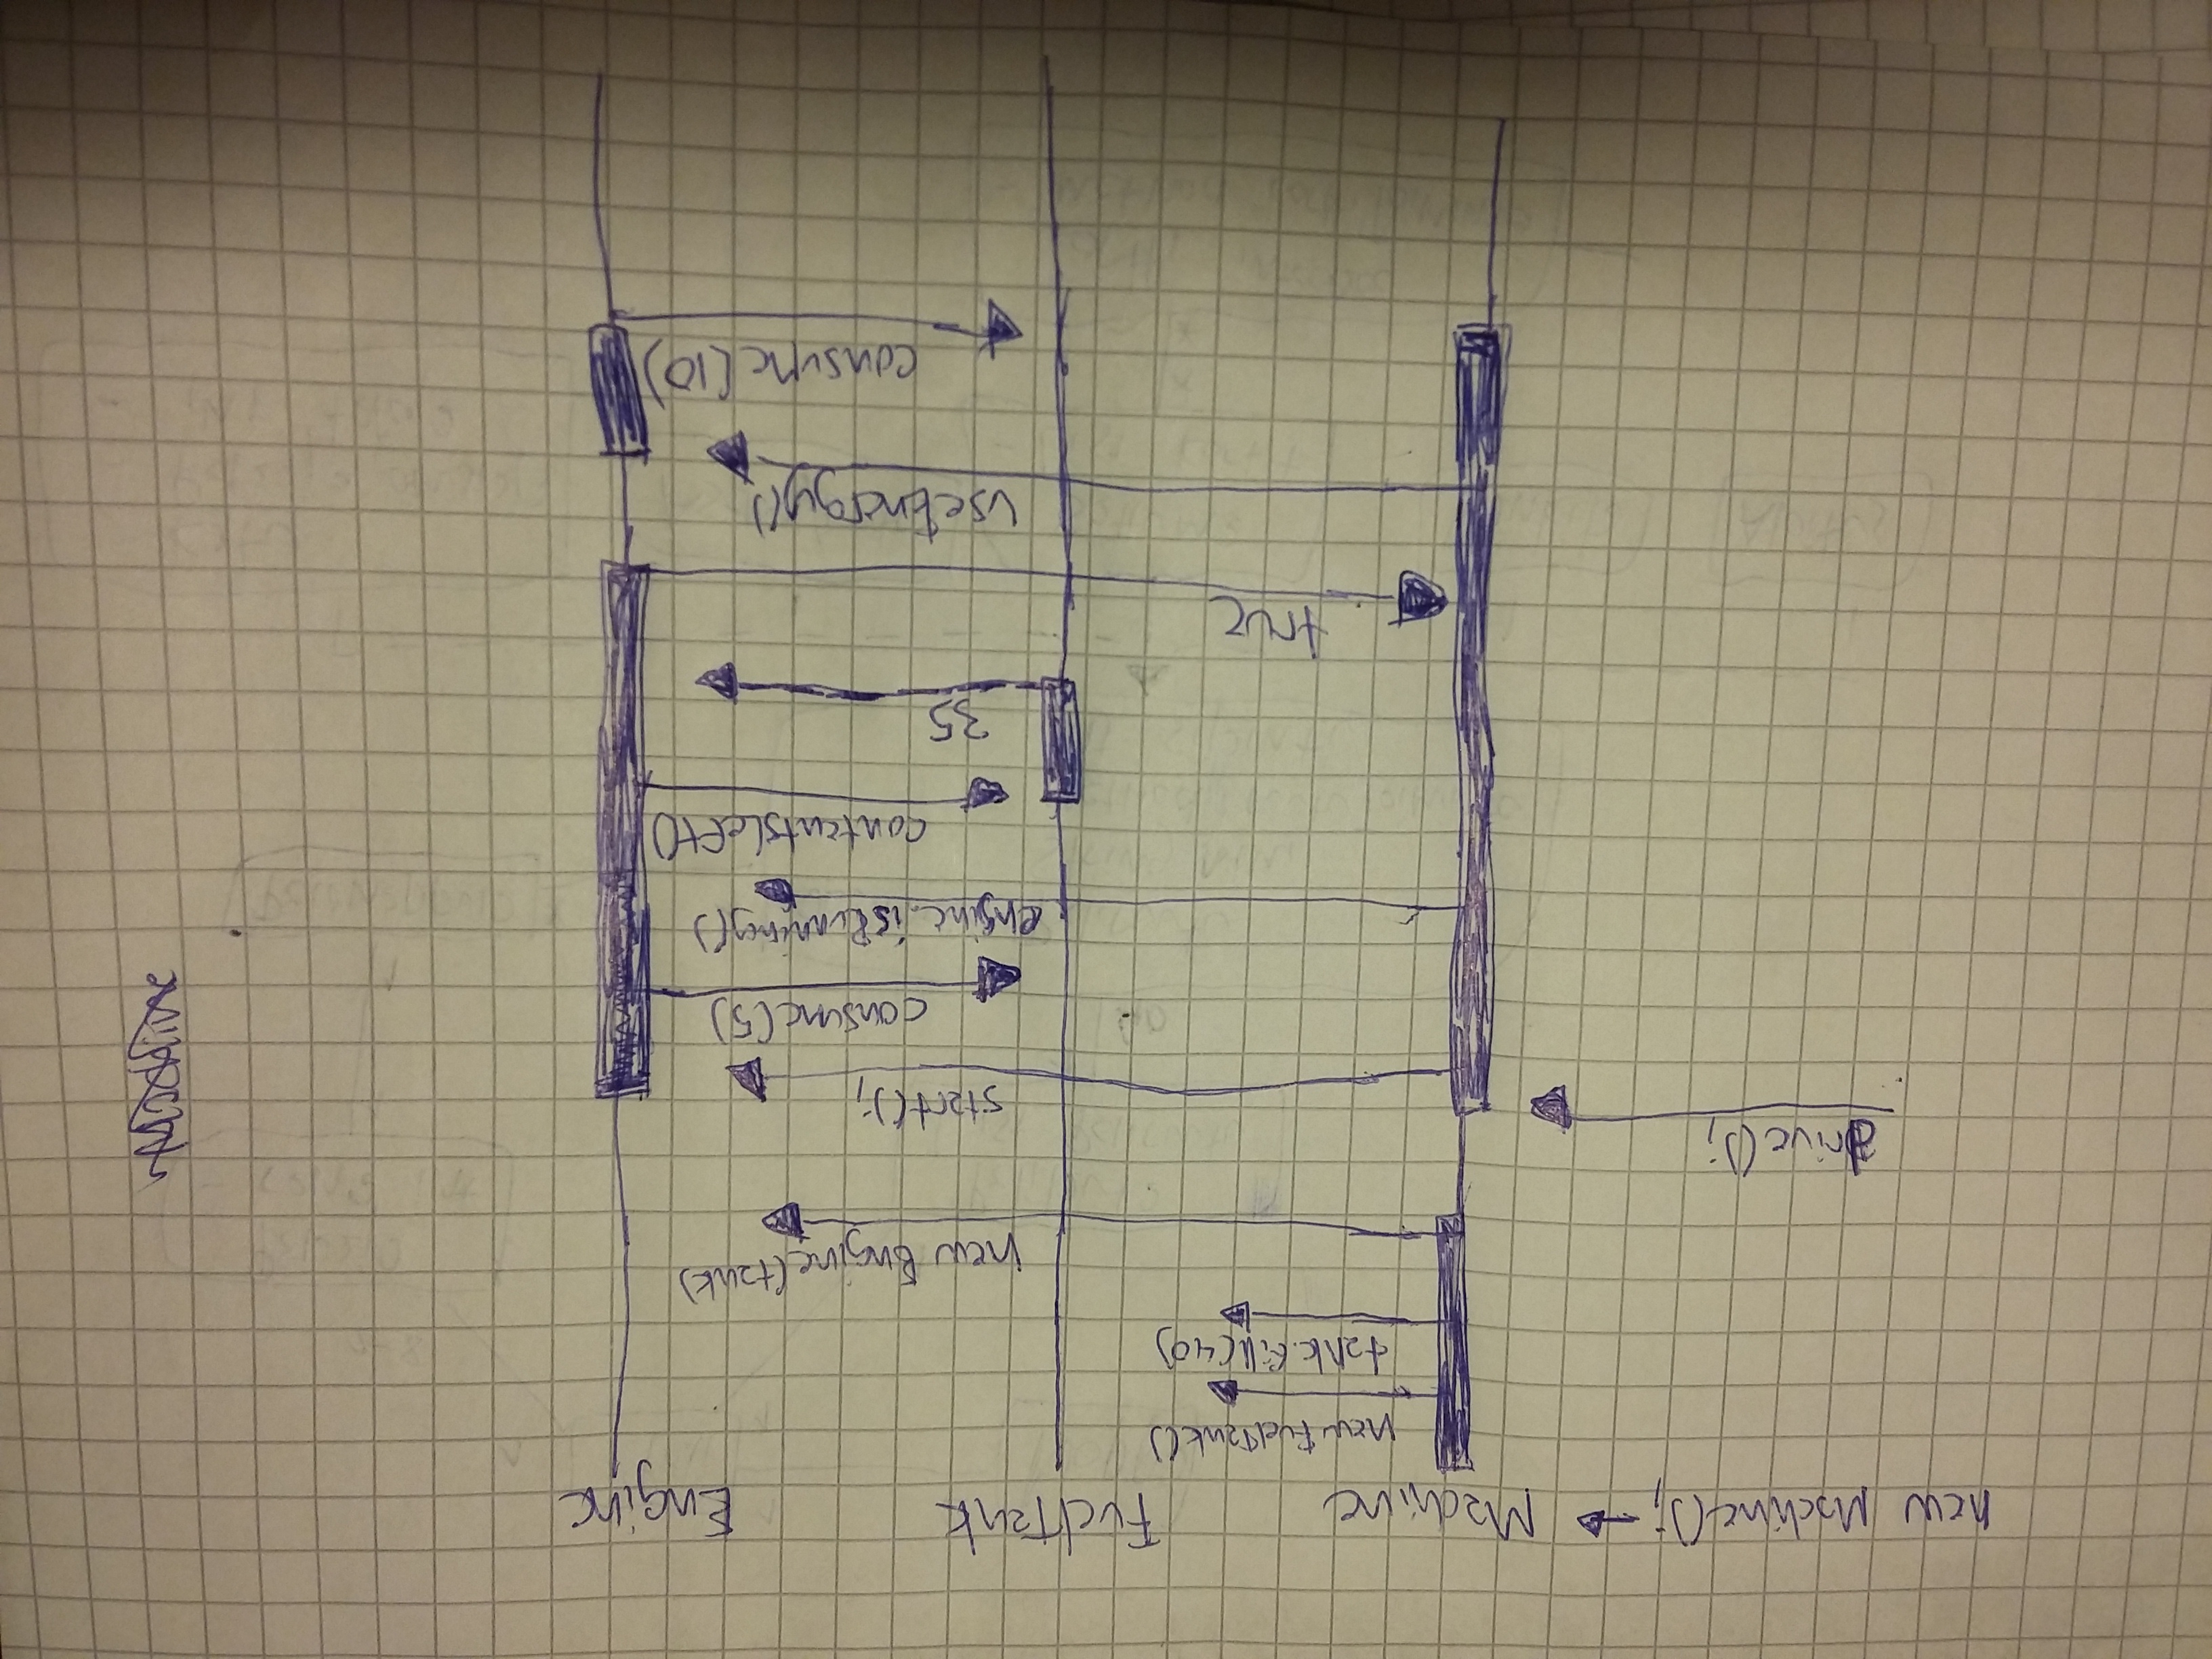 new Machine(); → Machine FuelTank Engine
new FuelTank()
tank.fill(40)
new Engine(tank)
drive();
start();
consume(5)
engine.isRunning()
contentsLeft()
35
true
useEnergy()
consume(10)